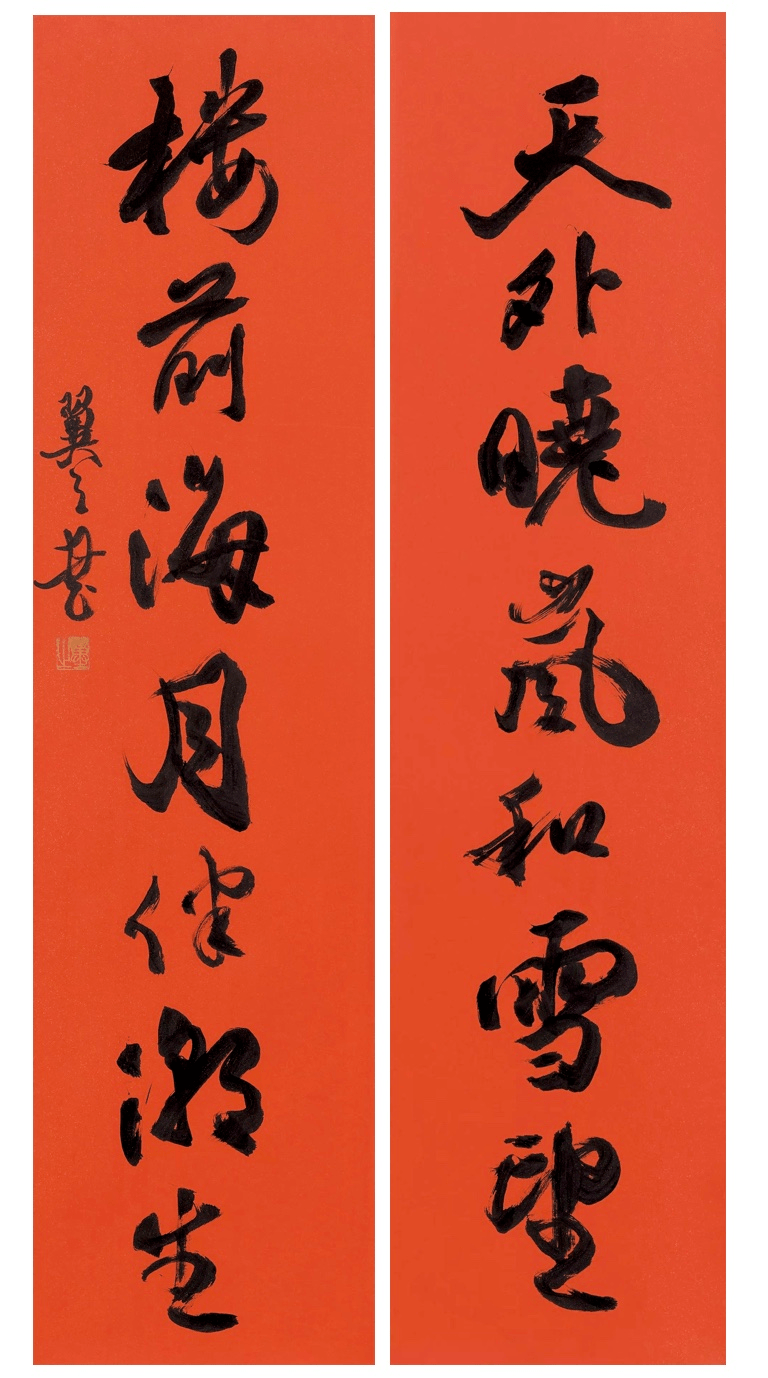 天外曉嵐和雪望
樓前海月伴潮生
翼之書